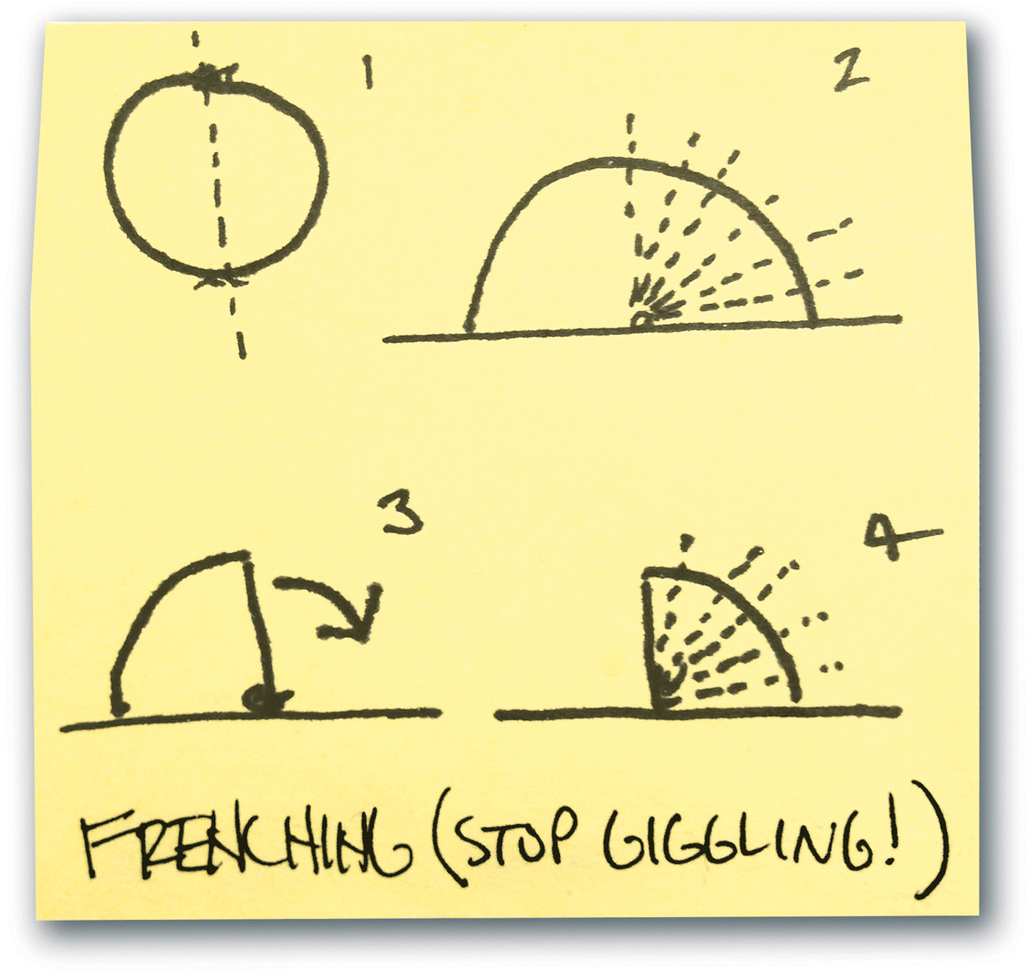 1
2
3
4
FRENCHING (STOP GIGGLING!)